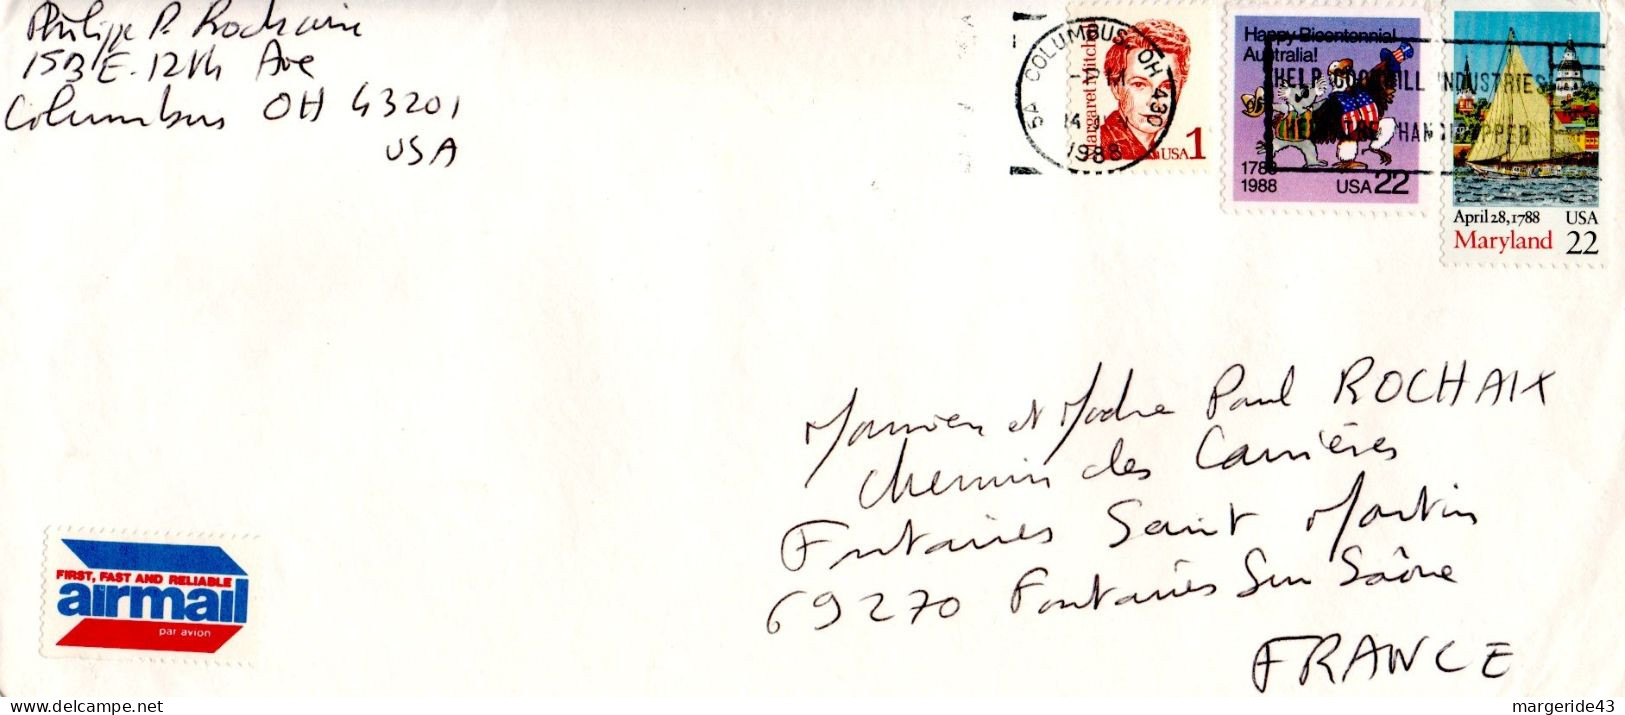 Philippe P. Rochaix
153 E. 12th Ave
Columbus OH 43201
USA
COLUMBUS, OH 430
1988
Margaret Mitchell
USA 1
Happy Bicentennial
Australia!
1788
1988
USA 22
HELP GOODWILL INDUSTRIES
HELP THE HANDICAPPED
April 28, 1788 USA
Maryland 22
Monsieur et Madame Paul ROCHAIX
Chemin des Carrières
Fontaines Saint Martin
69270 Fontaines Sur Saône
FRANCE
FIRST, FAST AND RELIABLE
airmail
par avion
www.delcampe.net
margeride43